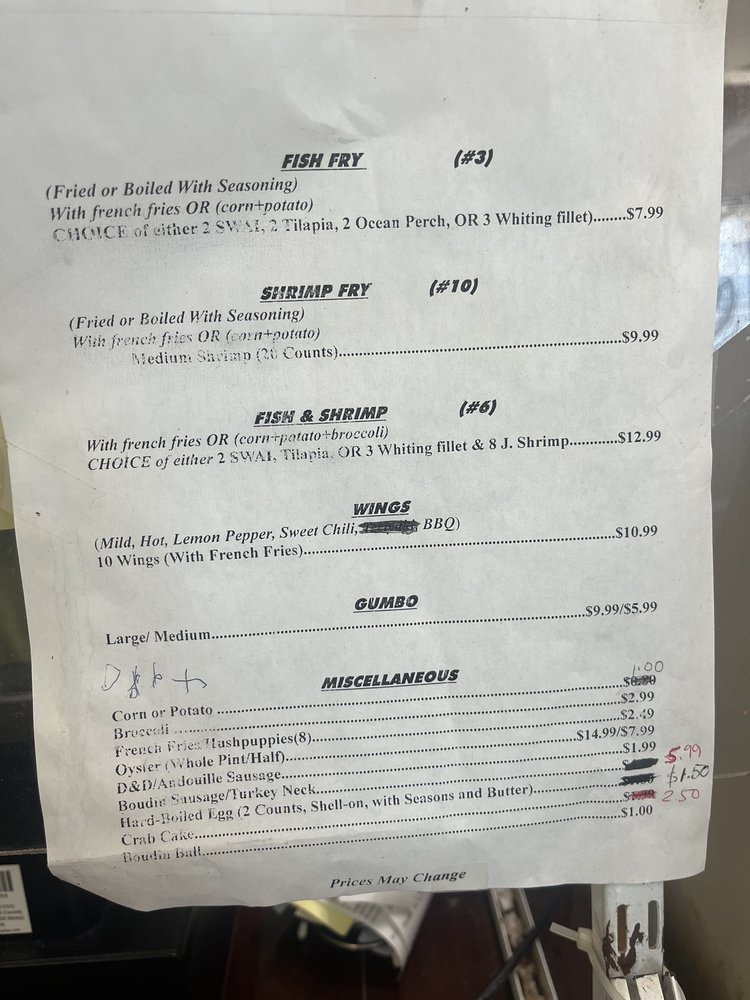 FISH FRY (#3)
(Fried or Boiled With Seasoning)
With french fries OR (corn+potato)
CHOICE of either 2 SWAI, 2 Tilapia, 2 Ocean Perch, OR 3 Whiting fillet)........$7.99
SHRIMP FRY (#10)
(Fried or Boiled With Seasoning)
With french fries OR (corn+potato)
Medium Shrimp (20 Counts)..........$9.99
FISH & SHRIMP (#6)
With french fries OR (corn+potato+broccoli)
CHOICE of either 2 SWAI, Tilapia, OR 3 Whiting fillet & 8 J. Shrimp............$12.99
WINGS
(Mild, Hot, Lemon Pepper, Sweet Chili, BBQ)
10 Wings (With French Fries)..........$10.99
GUMBO
Large/ Medium..........$9.99/$5.99
MISCELLANEOUS
Corn or Potato .......... 1.00
Broccoli ..........$2.99
French Fries/Hushpuppies(8)..........$2.49
Oyster (Whole Pint/Half)..........$14.99/$7.99
D&D/Andouille Sausage..........$1.99
Boudin Sausage/Turkey Neck.......... 5.99
Hard-Boiled Egg (2 Counts, Shell-on, with Seasons and Butter).......... $1.50
Crab Cake.......... 2.50
Boudin Ball..........$1.00
Prices May Change